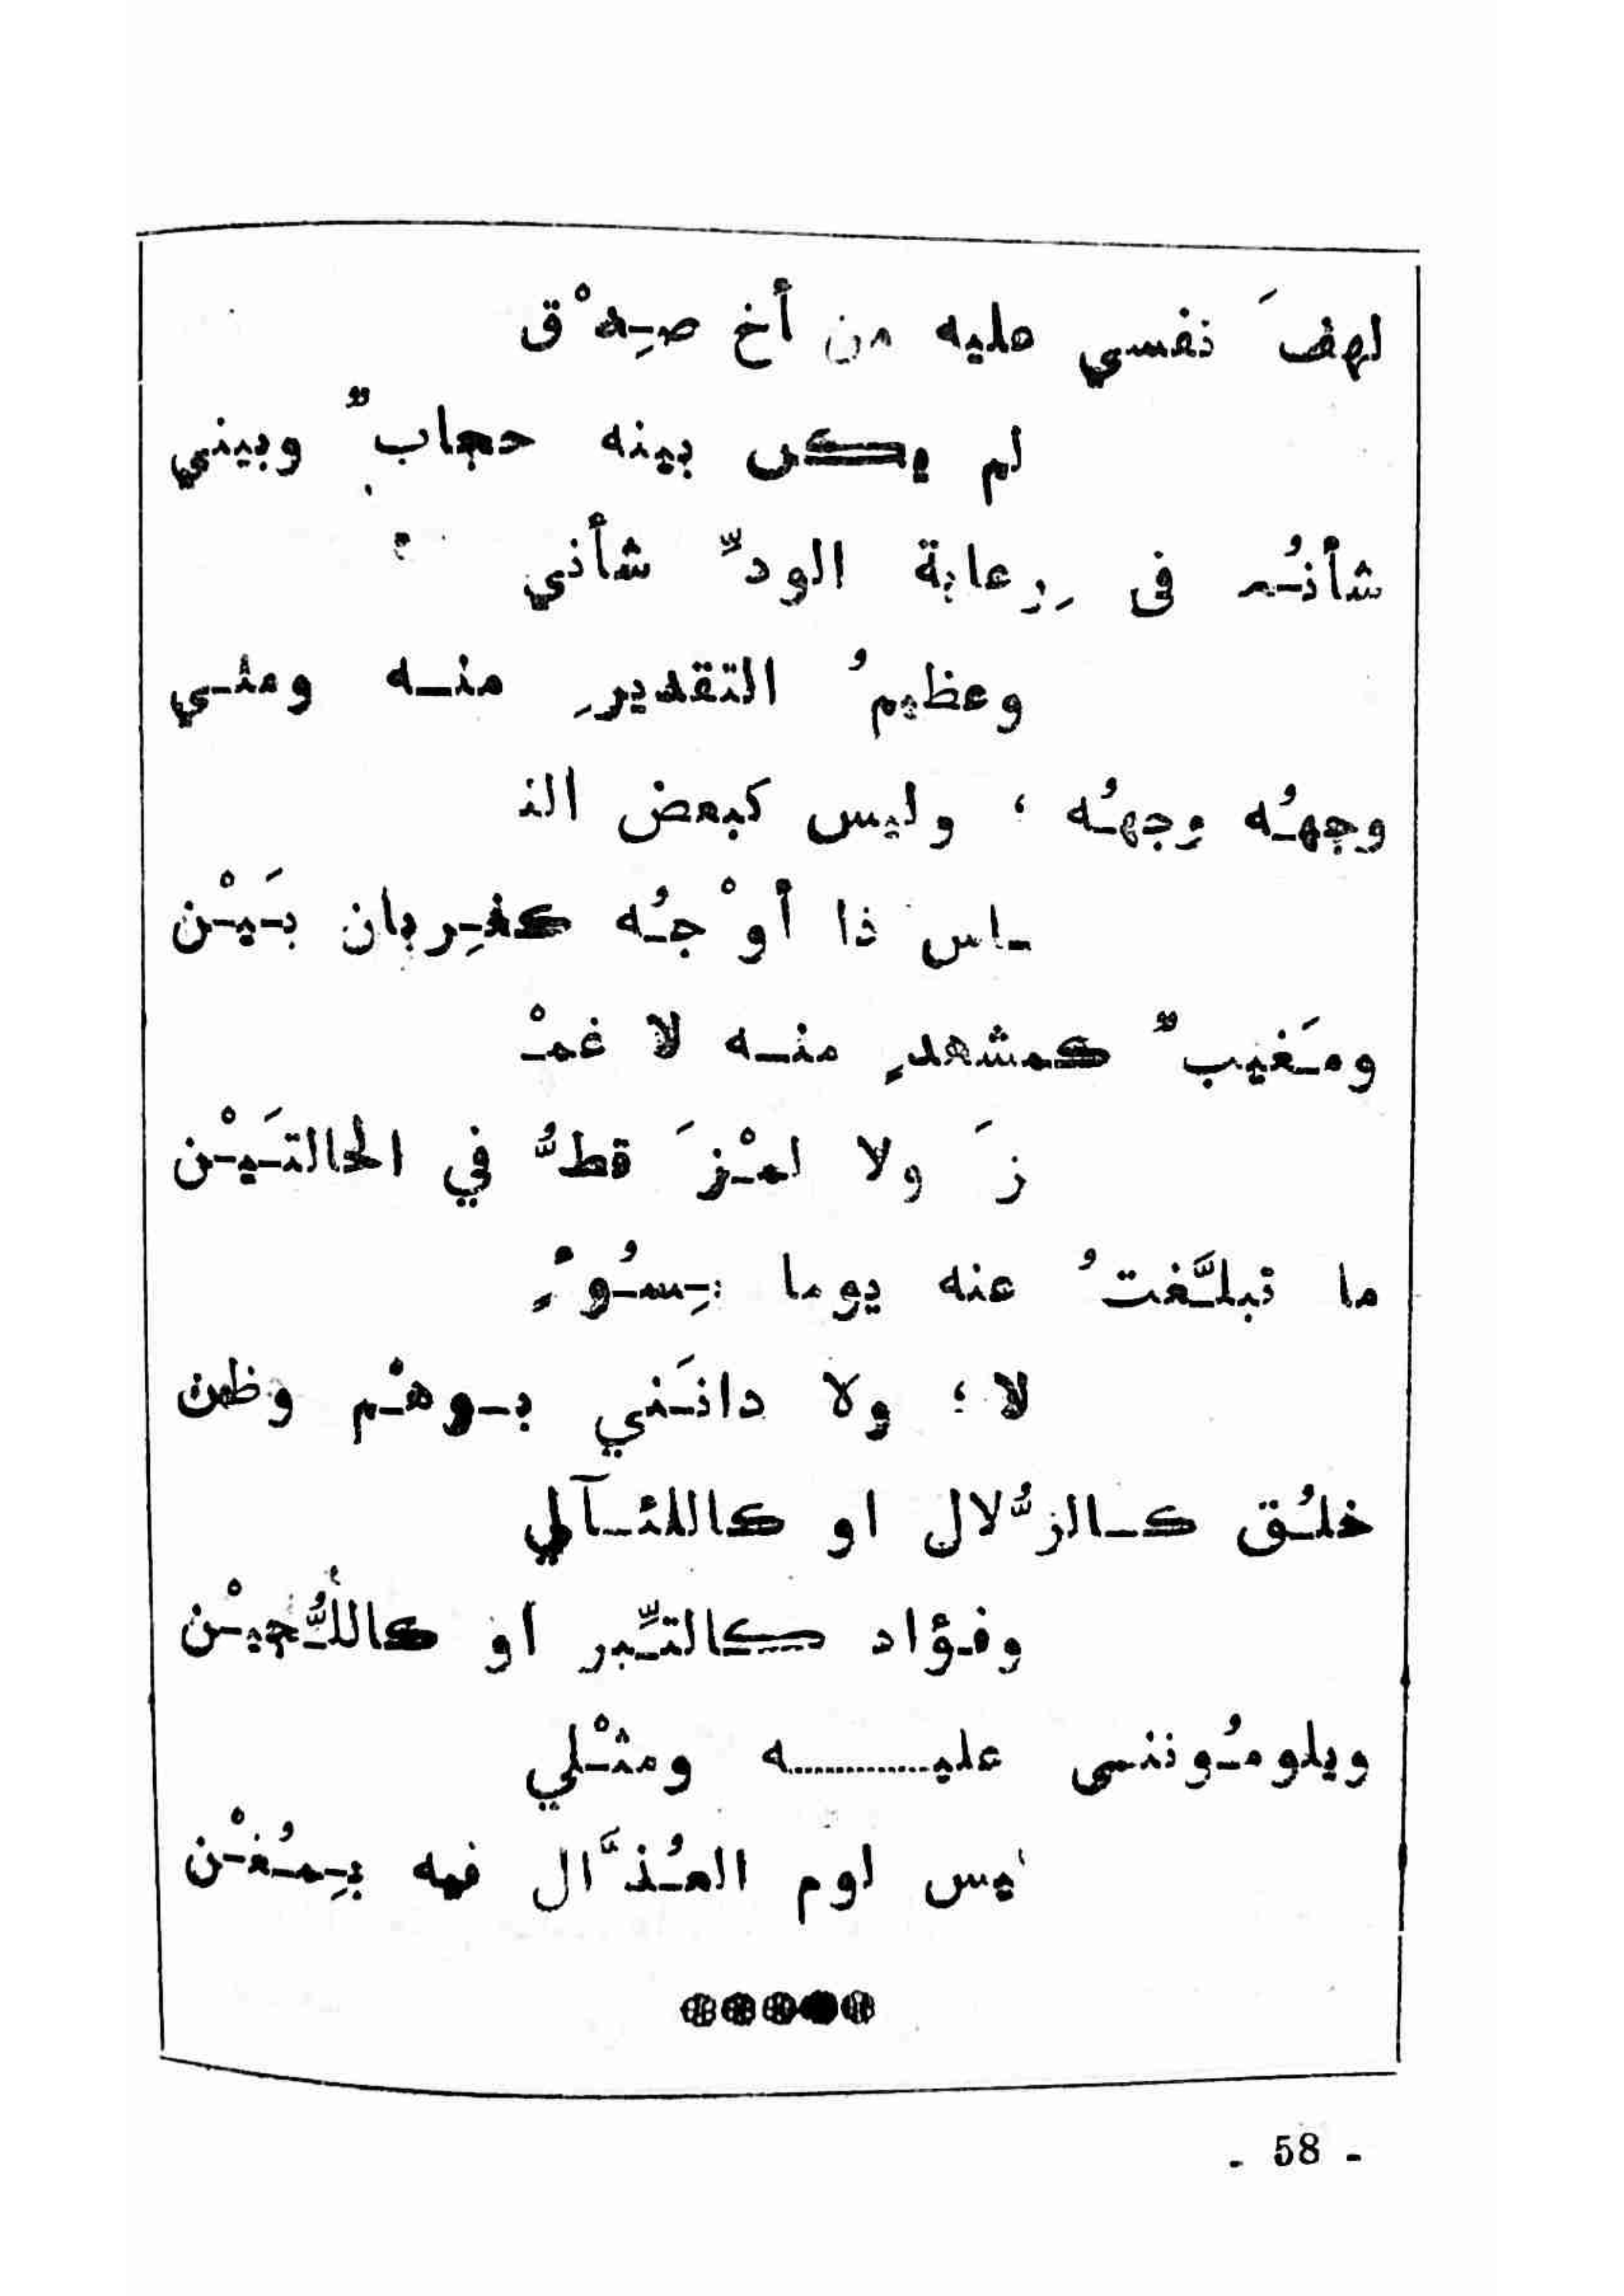 لهفَ نفسي عليه من أخ صِدْق
لم يكن بينه حجابٌ وبيني
شأنُه في رِعاية الودِّ شأني
وعظيمُ التقديرِ منه ومني
وجهُه وجهُه ؛ وليس كبعض النـ
ـاس ذا أوْجُه كغِربان بَيْن
ومَغيبٌ كمشهدٍ منه لا غمْـ
زَ ولا لمْزَ قطُّ في الحالتَيْن
ما تبلَّغتُ عنه يوما بِسُوءٍ
لا ؛ ولا دانَني بوهْم وظن
خلُق كالزُّلال او كاللئآلي
وفؤاد كالتِّبر او كاللُّجيْن
ويلومُونني عليه ومثْلي
ليس لوم العُذَّال فيه بِمُغْن
- 58 -